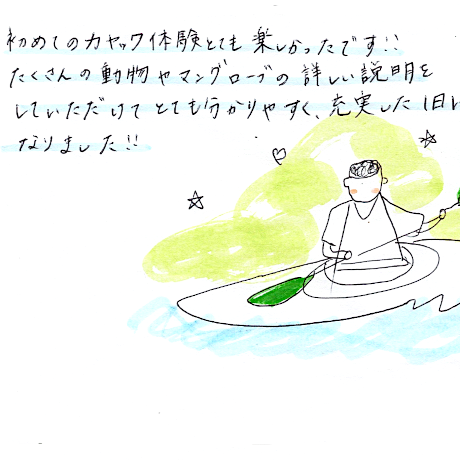 初めてのカヤック体験とても楽しかったです!!
たくさんの動物やマングローブの詳しい説明を
していただけてとても分かりやすく、充実した1日に
なりました!!